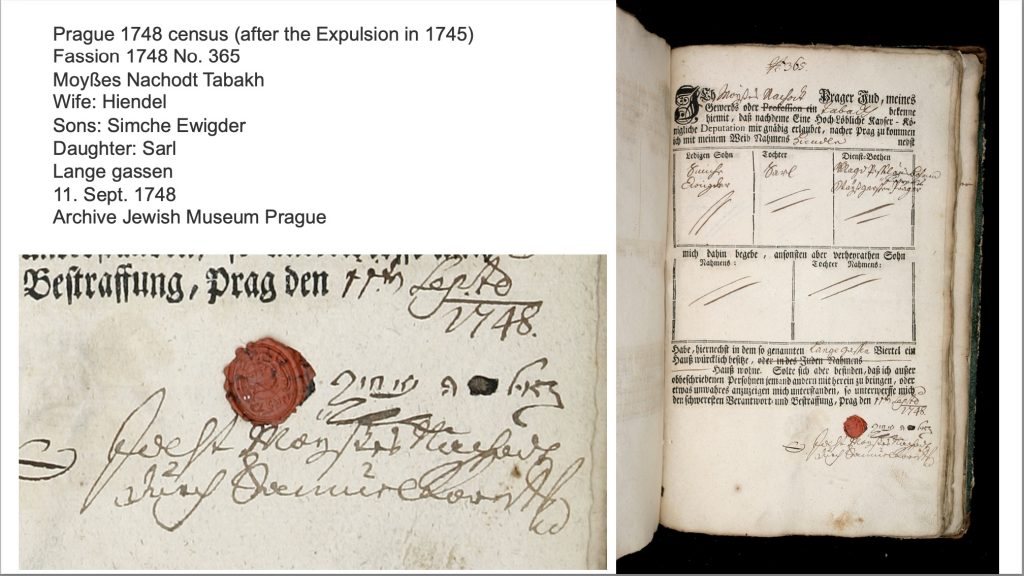 Prague 1748 census (after the Expulsion in 1745)
Fassion 1748 No. 365
Moyßes Nachodt Tabakh
Wife: Hiendel
Sons: Simche Ewigder
Daughter: Sarl
Lange gassen
11. Sept. 1748
Archive Jewish Museum Prague
Bestraffung, Prag den 11ten Septb
1748.
Moyses Nachodt
durch Samuel
No 365.
Ich Moyses Nachodt Prager Jud, meines
Gewerbs oder Profession ein Taback bekenne
hiemit, daß nachdeme Eine Hoch-Löbliche Kayser-Kö-
nigliche Deputation mir gnädig erlaubet, nacher Prag zu kommen
ich mit meinem Weib Nahmens Hiendl nebst
Ledigen Sohn Tochter Dienst-Bothen
Simche Sarl
mich dahin begebe, ansonsten aber verheyrathen Sohn
Nahmens: Tochter Nahmens:
Habe, hiernechst in dem so genannten lange gassen Viertel ein
Hauß würcklich besitze, oder in des Juden Nahmens
Hauß wohne. Solte sich aber befinden, daß ich außer
obbeschriebenen Persohnen jemand andern mit herein zu bringen, oder
etwas unwahres anzuzeigen mich unterstanden, so unterwerffe mich
den schweresten Verantwort- und Bestraffung, Prag den 11ten Septb
1748
Moyses Nachodt
durch Samuel